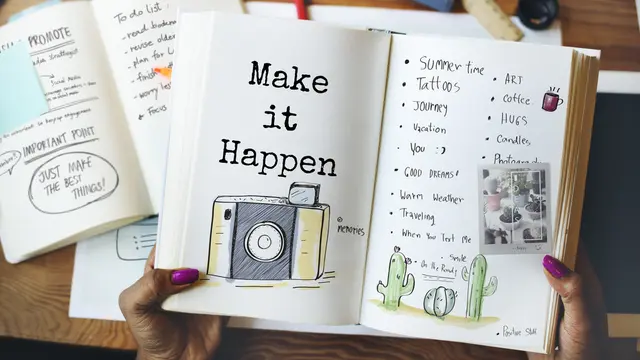 PROMOTE
Social Media
IMPORTANT POINT
JUST MAKE
THE BEST
THINGS!
To do list
- read book
- reuse older
- plan for
- finish
- worry less
* Focus
Make
it
Happen
© Memories
• Summer time
• Tattoos
• Journey
• Vacation
• You :)
• Good Dreams!
• Warm Weather
• Traveling
• When You Text Me
• Smile
• On the Road
• ART
• Coffee
• HUGS
• Candles
• Positive Stuff